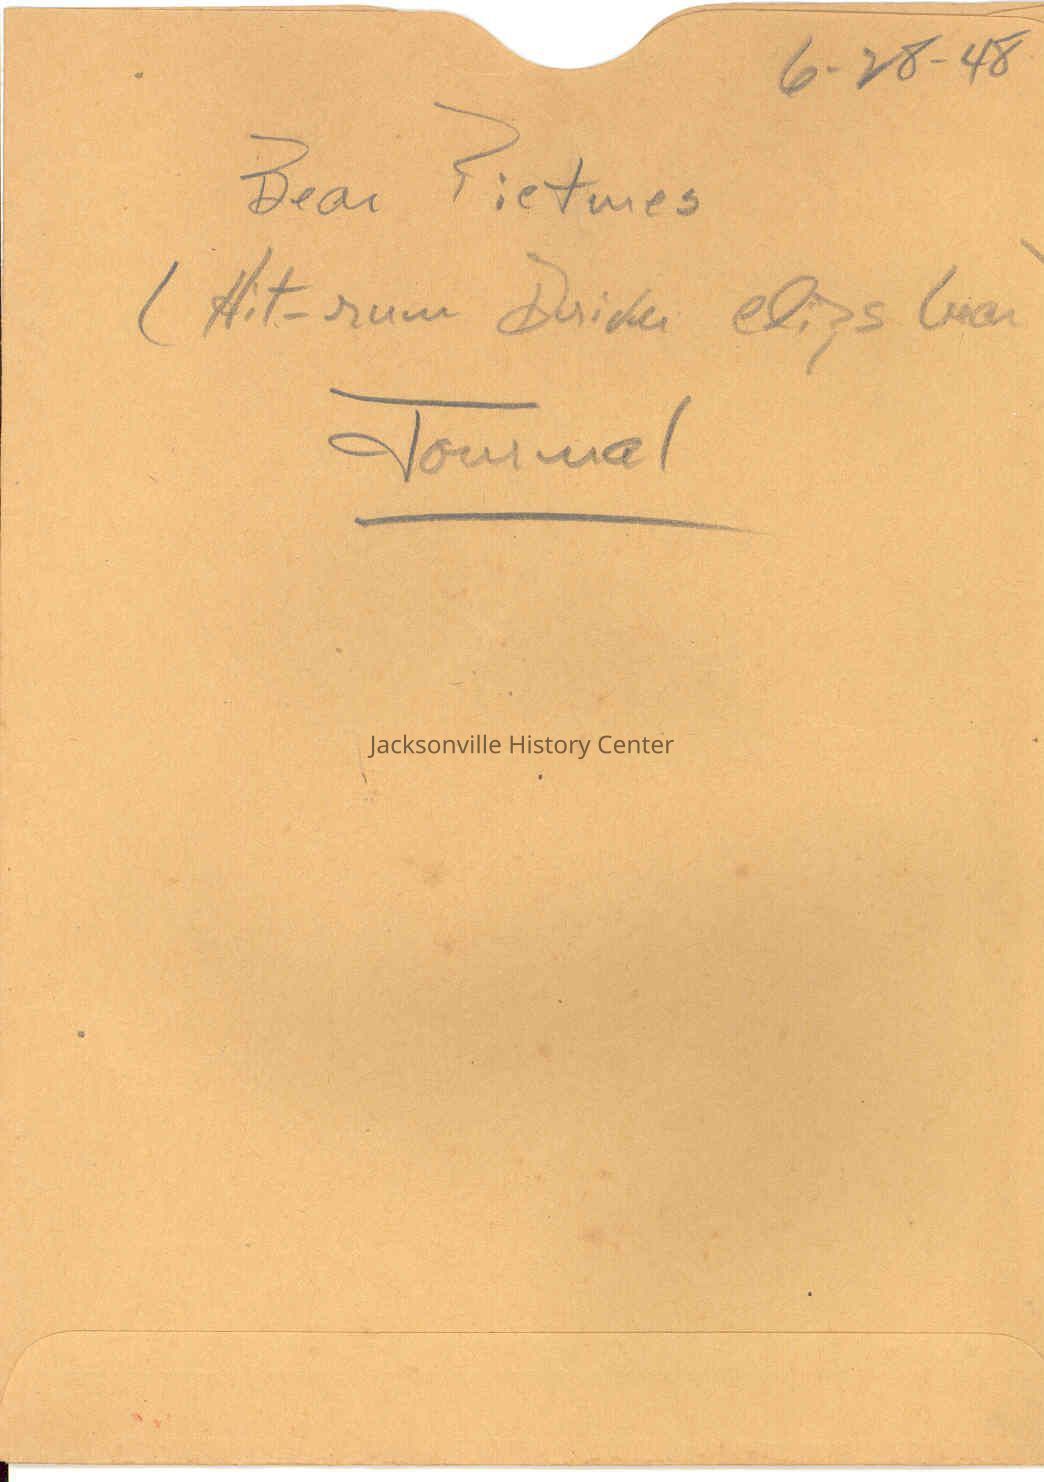 6-28-48
Bear Pictures
(Hit-run Driver clips bear)
Journal
Jacksonville History Center